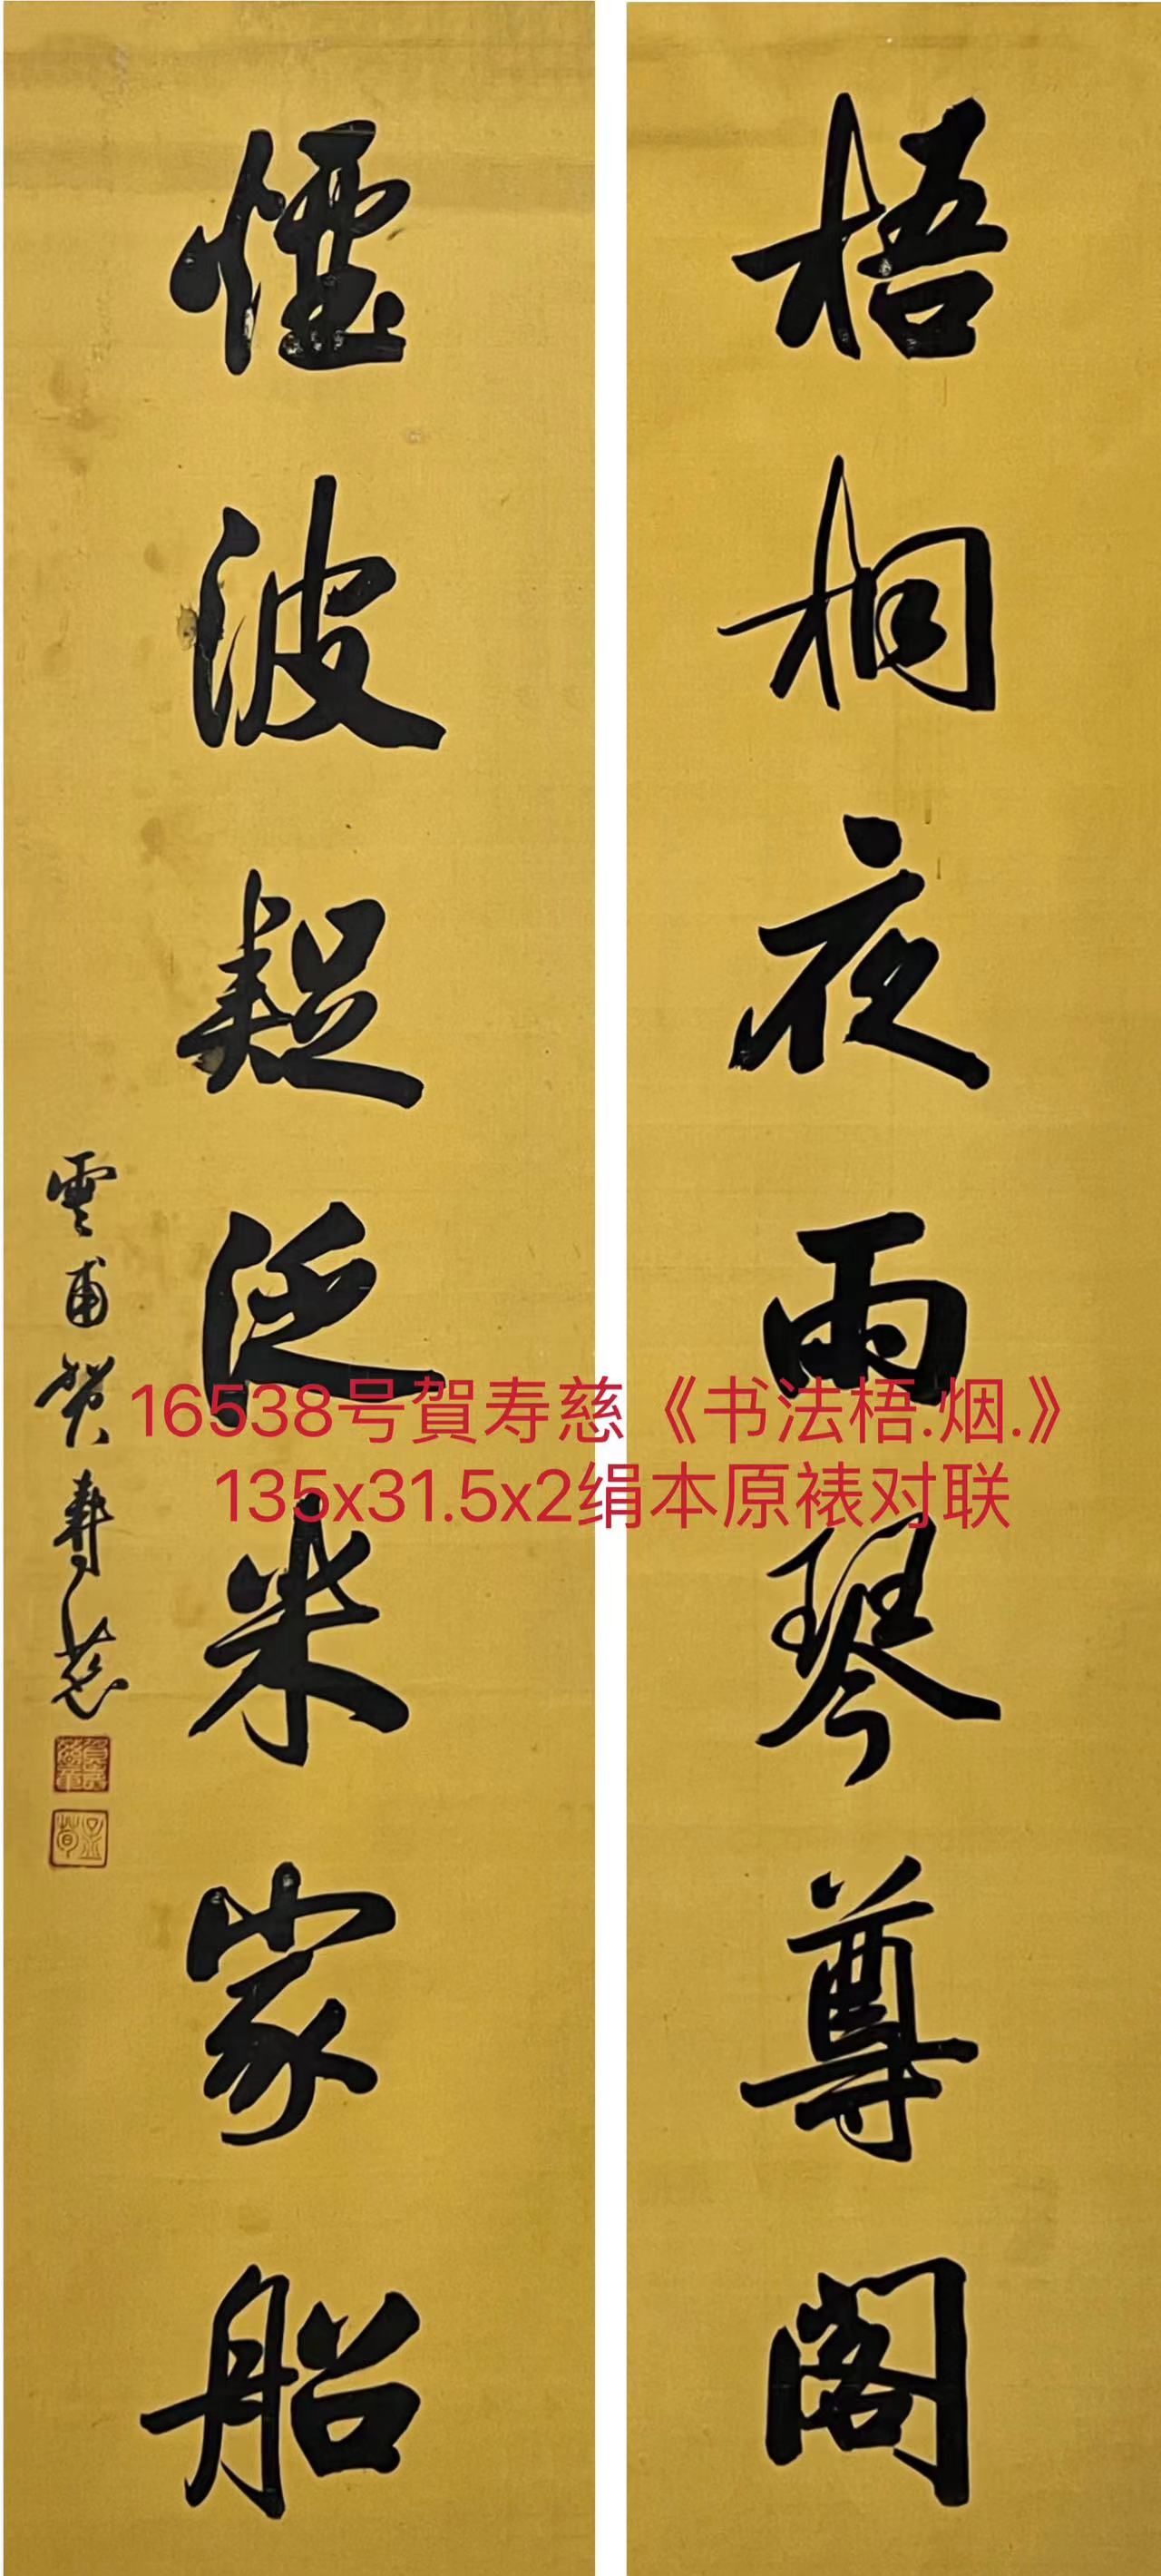 梧桐夜雨琴尊阁
煙波疑泛米家船
雲甫賀壽慈
16538号賀寿慈《书法梧.烟.》
135x31.5x2绢本原裱对联